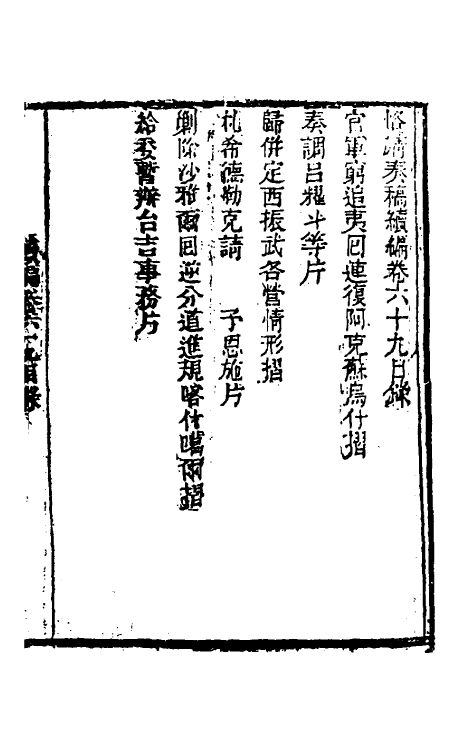 恪靖奏稿續編卷六十九目錄
官軍窮追夷回連復阿克蘇烏什摺
奏調呂耀斗等片
歸併定西振武各營情形摺
札希德勒克請 予恩施片
勦除沙雅爾回逆分道進規喀什噶爾摺
給委暫辦台吉事務片
續編卷六十九目錄